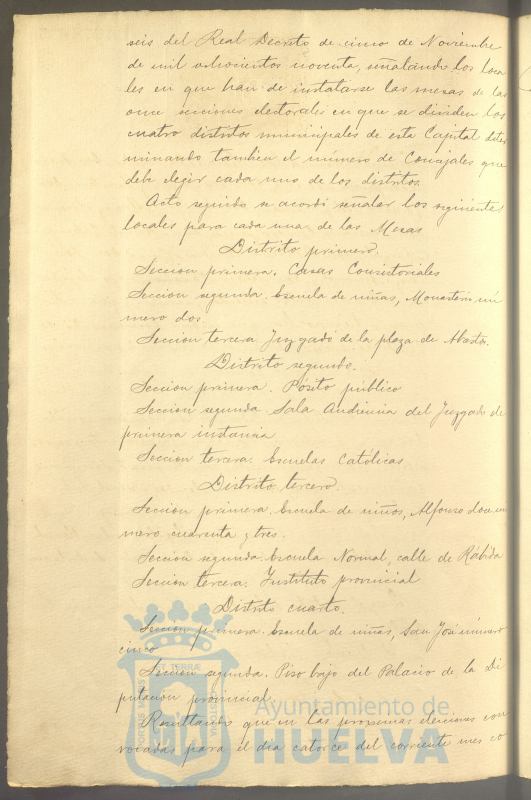 seis del Real Decreto de cinco de Noviembre
de mil ochocientos noventa, señalando los loca
les en que han de instalarse las mesas de las
once secciones electorales en que se dividen los
cuatro distritos municipales de esta Capital deter
minando tambien el número de Concejales que
debe elejir cada uno de los distritos.
Acto seguido se acordó señalar los siguientes
locales para cada una de las Mesas
Distrito primero.
Seccion primera. Casas Consistoriales
Seccion segunda. Escuela de niñas, Monasterio nú
mero dos
Seccion tercera Juzgado de la plaza de Abastos.
Distrito segundo.
Seccion primera. Pósito público
Seccion segunda Sala Audiencia del Juzgado de
primera instancia
Seccion tercera. Escuelas Católicas
Distrito tercero.
Seccion primera. Escuela de niños, Alfonso doce nú
mero cuarenta y tres.
Seccion segunda. Escuela Normal, calle de Rábida
Seccion tercera. Instituto provincial
Distrito cuarto.
Seccion primera. Escuela de niñas, San José número
cinco
Seccion segunda. Piso bajo del Palacio de la Di
putacion provincial
Resultando que en las proximas elecciones con
vocadas para el dia catorce del corriente mes co
Ayuntamiento de
HUELVA